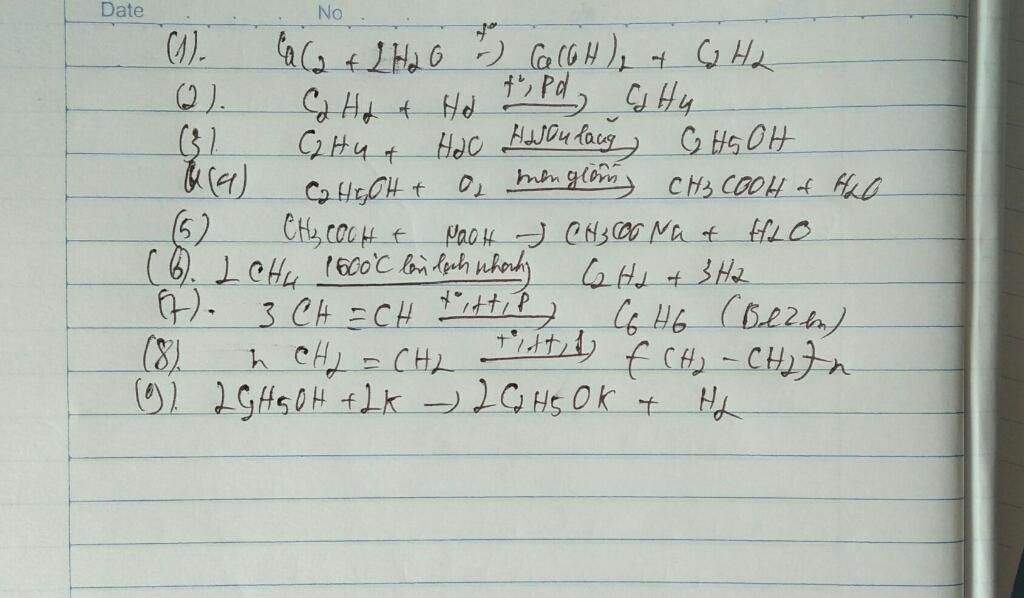 Date No
(1). CaC2 + 2H2O t°→ Ca(OH)2 + C2H2
(2). C2H2 + H2 t°, Pd→ C2H4
(3). C2H4 + H2O H2SO4 loãng→ C2H5OH
(4) C2H5OH + O2 men giấm→ CH3COOH + H2O
(5) CH3COOH + NaOH → CH3COONa + H2O
(6). 2CH4 1500°C làm lạnh nhanh→ C2H2 + 3H2
(7). 3 CH ≡ CH t°, tt, P→ C6H6 (Bezen)
(8). n CH2 = CH2 t°, tt, → (CH2 - CH2)n
(9). 2C2H5OH + 2K → 2C2H5OK + H2